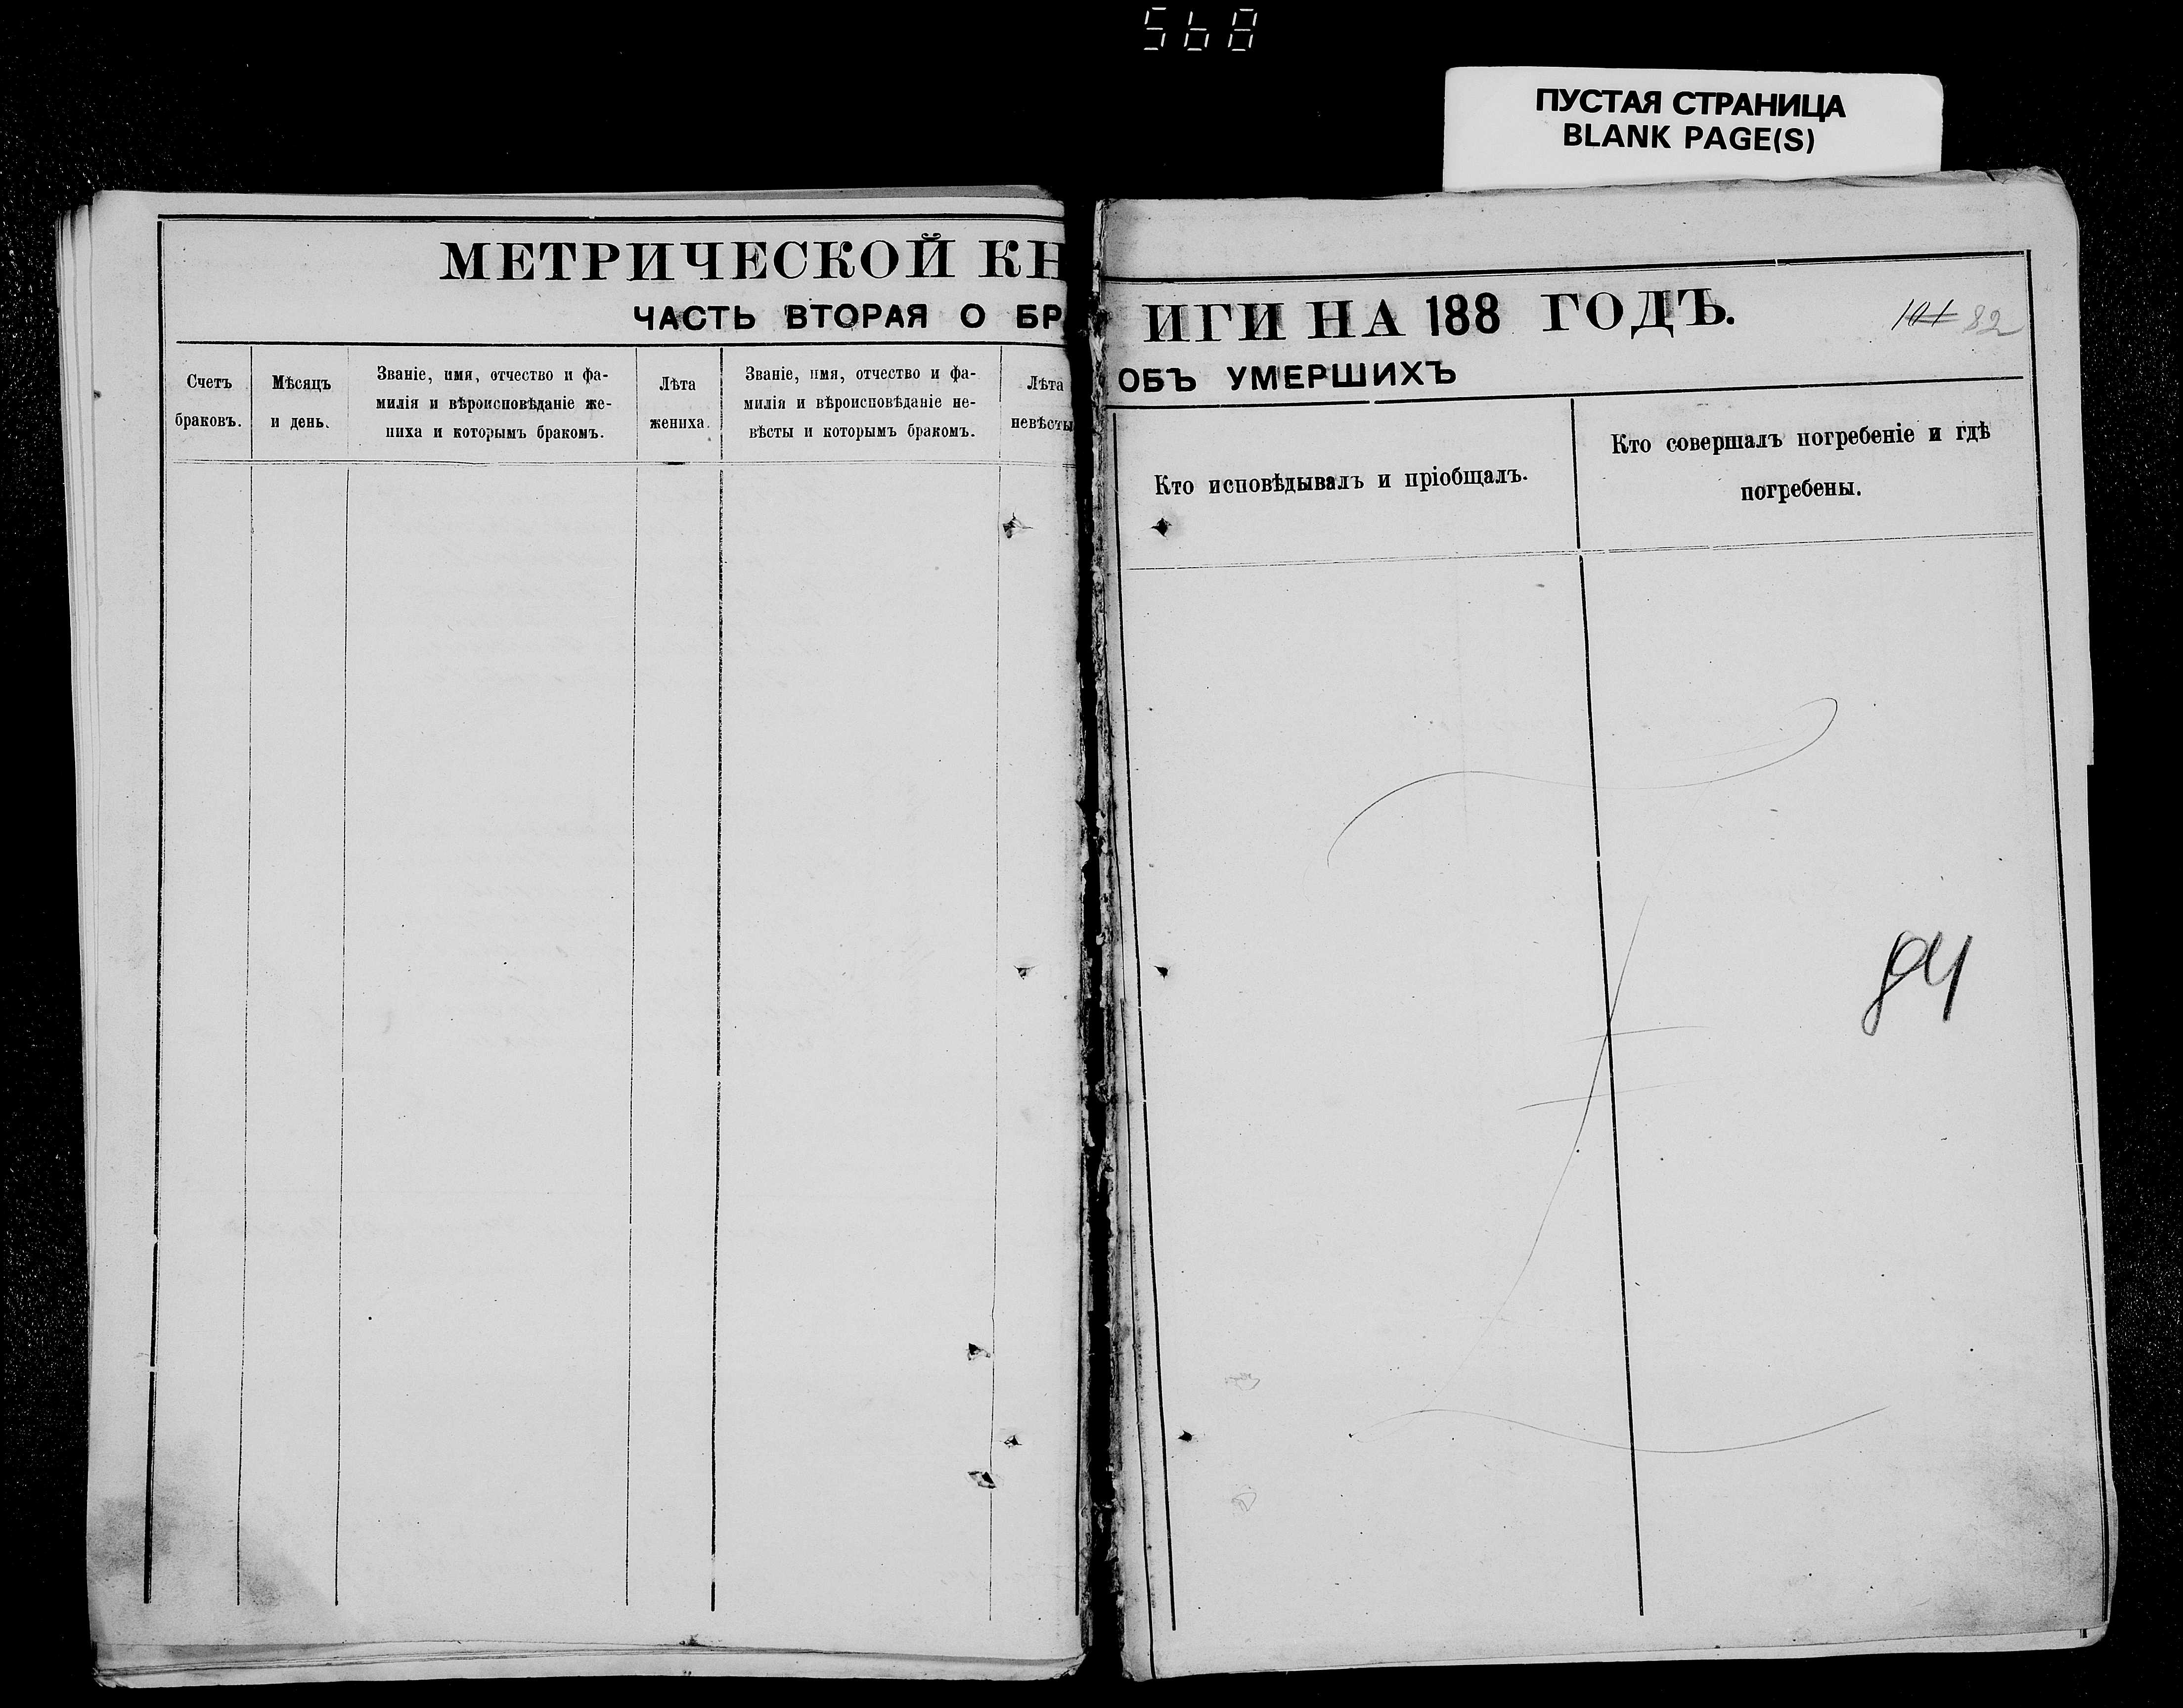 568
ПУСТАЯ СТРАНИЦА
BLANK PAGE(S)
МЕТРИЧЕСКОЙ КН
ЧАСТЬ ВТОРАЯ О БР
Счетъ
браковъ.
Мѣсяцъ
и день.
Званіе, имя, отчество и фа-
милія и вѣроисповѣданіе же-
ниха и которымъ бракомъ.
Лѣта
жениха.
Званіе, имя, отчество и фа-
милія и вѣроисповѣданіе не-
вѣсты и которымъ бракомъ.
Лѣта
невѣсты
ИГИ НА 188 ГОДЪ.
101 82
ОБЪ УМЕРШИХЪ
Кто исповѣдывалъ и пріобщалъ.
Кто совершалъ погребеніе и гдѣ
погребены.